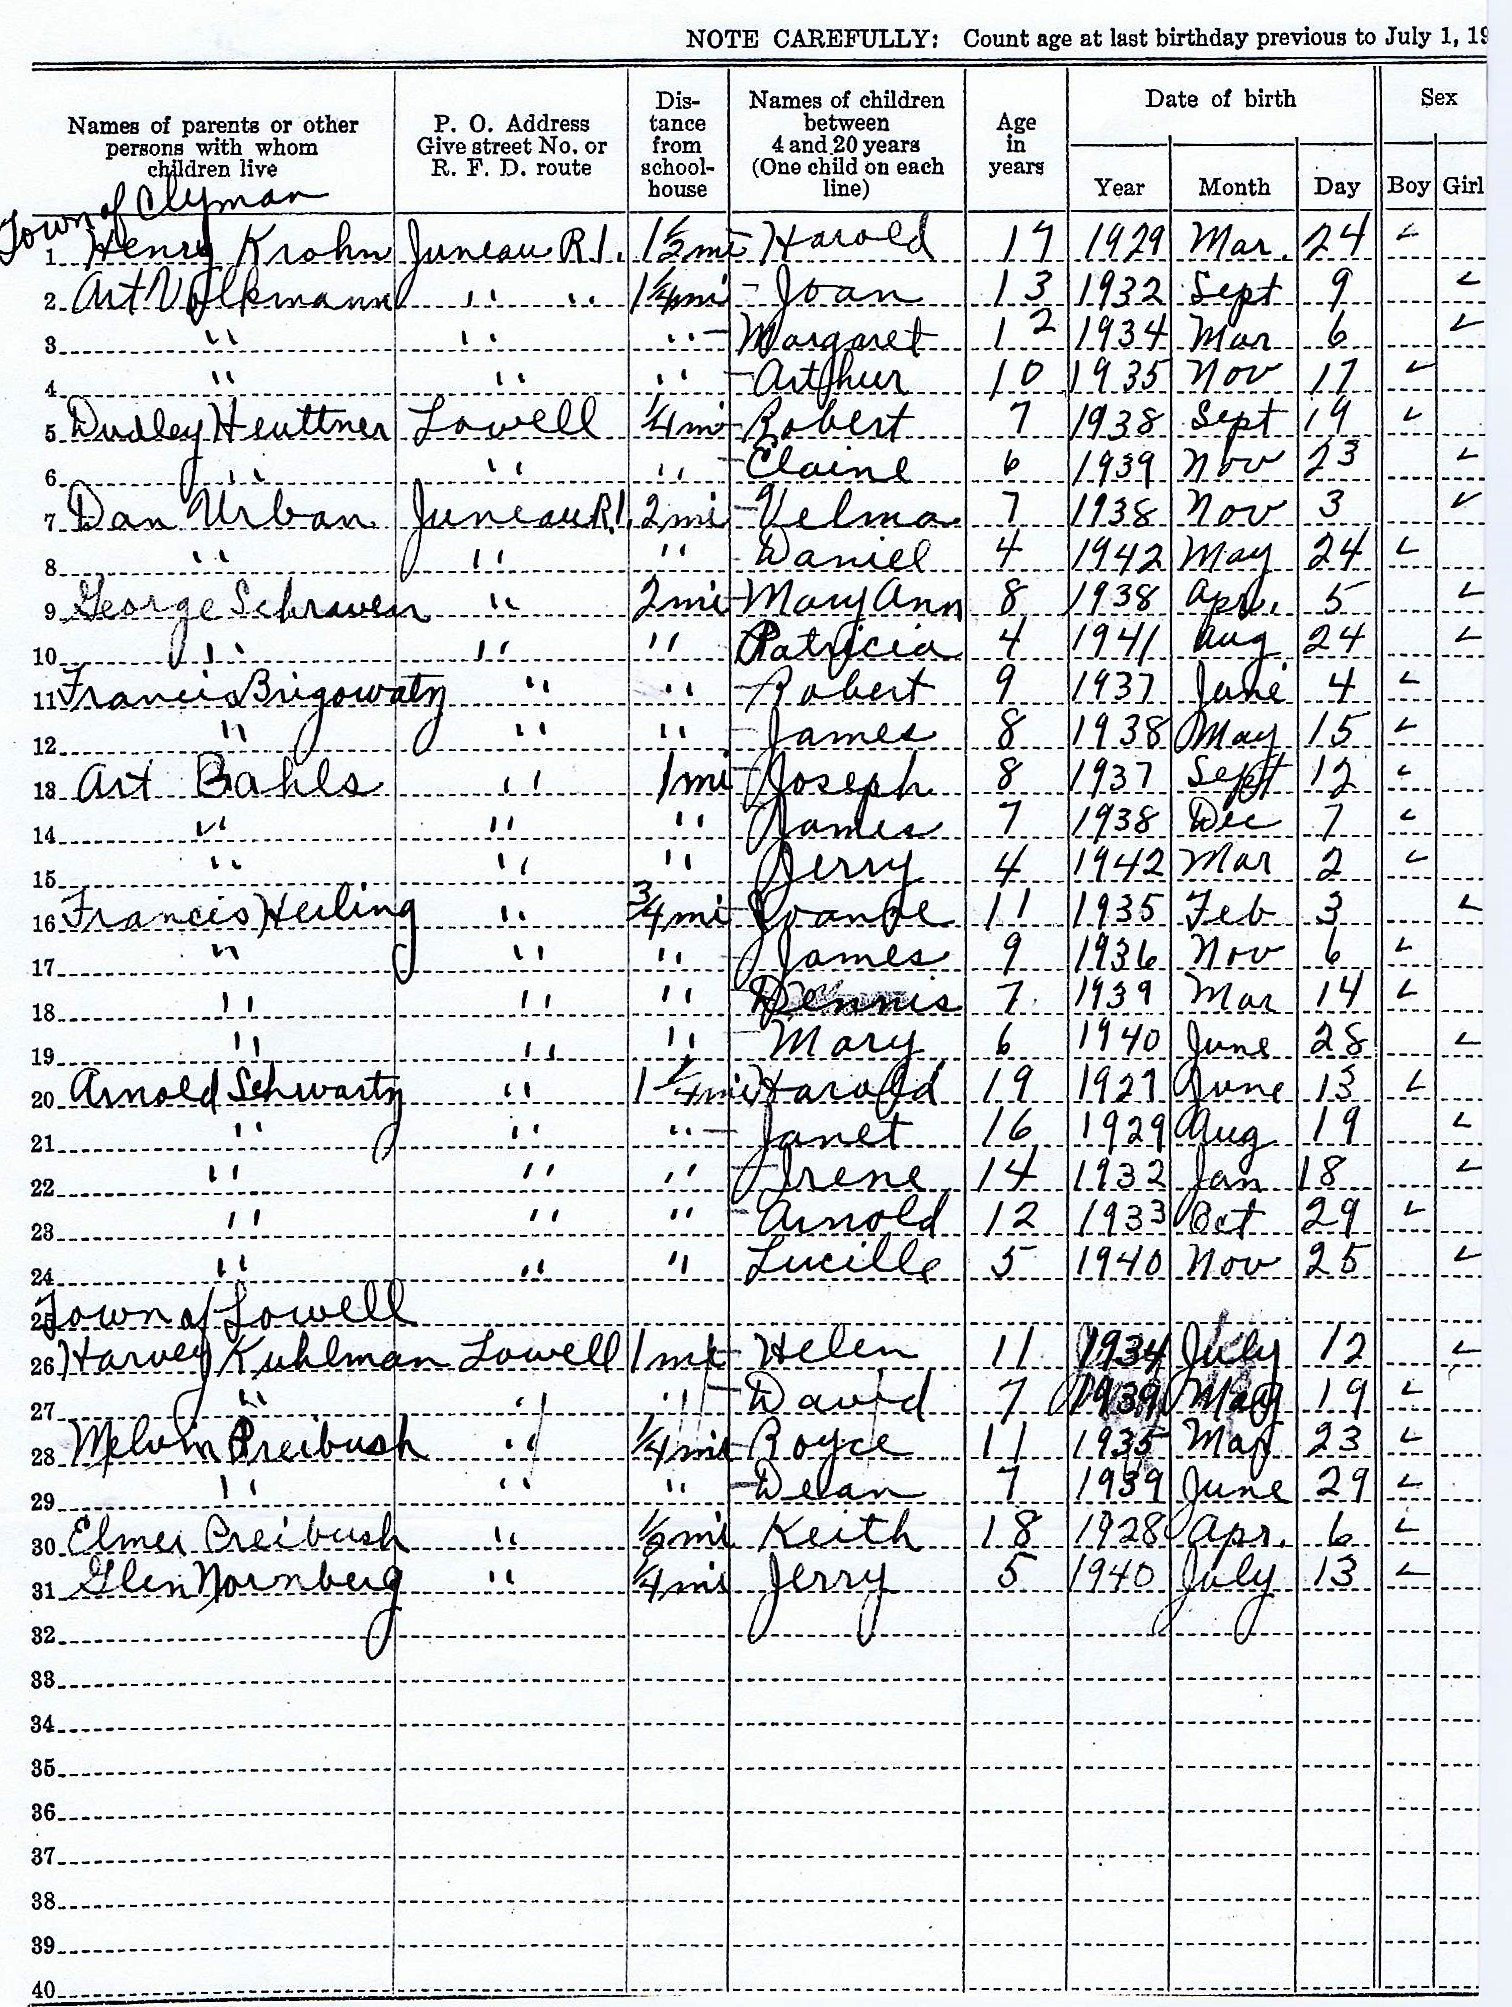 NOTE CAREFULLY: Count age at last birthday previous to July 1, 19
Names of parents or other persons with whom children live | P. O. Address Give street No. or R. F. D. route | Dis-tance from school-house | Names of children between 4 and 20 years (One child on each line) | Age in years | Date of birth | Sex
Year | Month | Day | Boy | Girl
Town of Clyman
1 Henry Krohn Juneau R1. 1 1/2 mi Harold 17 1929 Mar. 24 ✓
2 Art Volkmann " " 1 1/4 mi - Joan 13 1932 Sept 9 ✓
3 " " " - Margaret 12 1934 Mar 6 ✓
4 " " " - Arthur 10 1935 Nov 17 ✓
5 Dudley Heuttner Lowell 1/4 mi - Robert 7 1938 Sept 19 ✓
6 " " " - Elaine 6 1939 Nov 23 ✓
7 Dan Urban Juneau R1. 2 mi - Velma 7 1938 Nov 3 ✓
8 " " " Daniel 4 1942 May 24 ✓
9 George Schraven " 2 mi - Mary Ann 8 1938 Apr. 5 ✓
10 " " " Patricia 4 1941 Aug 24 ✓
11 Francis Brigowatz " " - Robert 9 1937 June 4 ✓
12 " " " - James 8 1938 May 15 ✓
13 Art Bahls " 1 mi - Joseph 8 1937 Sept 12 ✓
14 " " " - James 7 1938 Dec 7 ✓
15 " " " Jerry 4 1942 Mar 2 ✓
16 Francis Heiling " 3/4 mi - Joanne 11 1935 Feb 3 ✓
17 " " " - James 9 1936 Nov 6 ✓
18 " " " Dennis 7 1939 Mar 14 ✓
19 " " " - Mary 6 1940 June 28 ✓
20 Arnold Schwartz " 1 1/4 mi Harold 19 1927 June 13 ✓
21 " " " - Janet 16 1929 Aug 19 ✓
22 " " " - Irene 14 1932 Jan 18 ✓
23 " " " - Arnold 12 1933 Oct 29 ✓
24 " " " Lucille 5 1940 Nov 25 ✓
25 Town of Lowell
26 Harvey Kuhlman Lowell 1 mi - Helen 11 1934 July 12 ✓
27 " " " - David 7 1939 May 19 ✓
28 Melvin Preibush " 1/4 mi - Royce 11 1935 Mar 23 ✓
29 " " " - Dean 7 1939 June 29 ✓
30 Elmer Preibush " 1/2 mi Keith 18 1928 Apr. 6 ✓
31 Glen Nornberg " 1/4 mi Jerry 5 1940 July 13 ✓
32
33
34
35
36
37
38
39
40